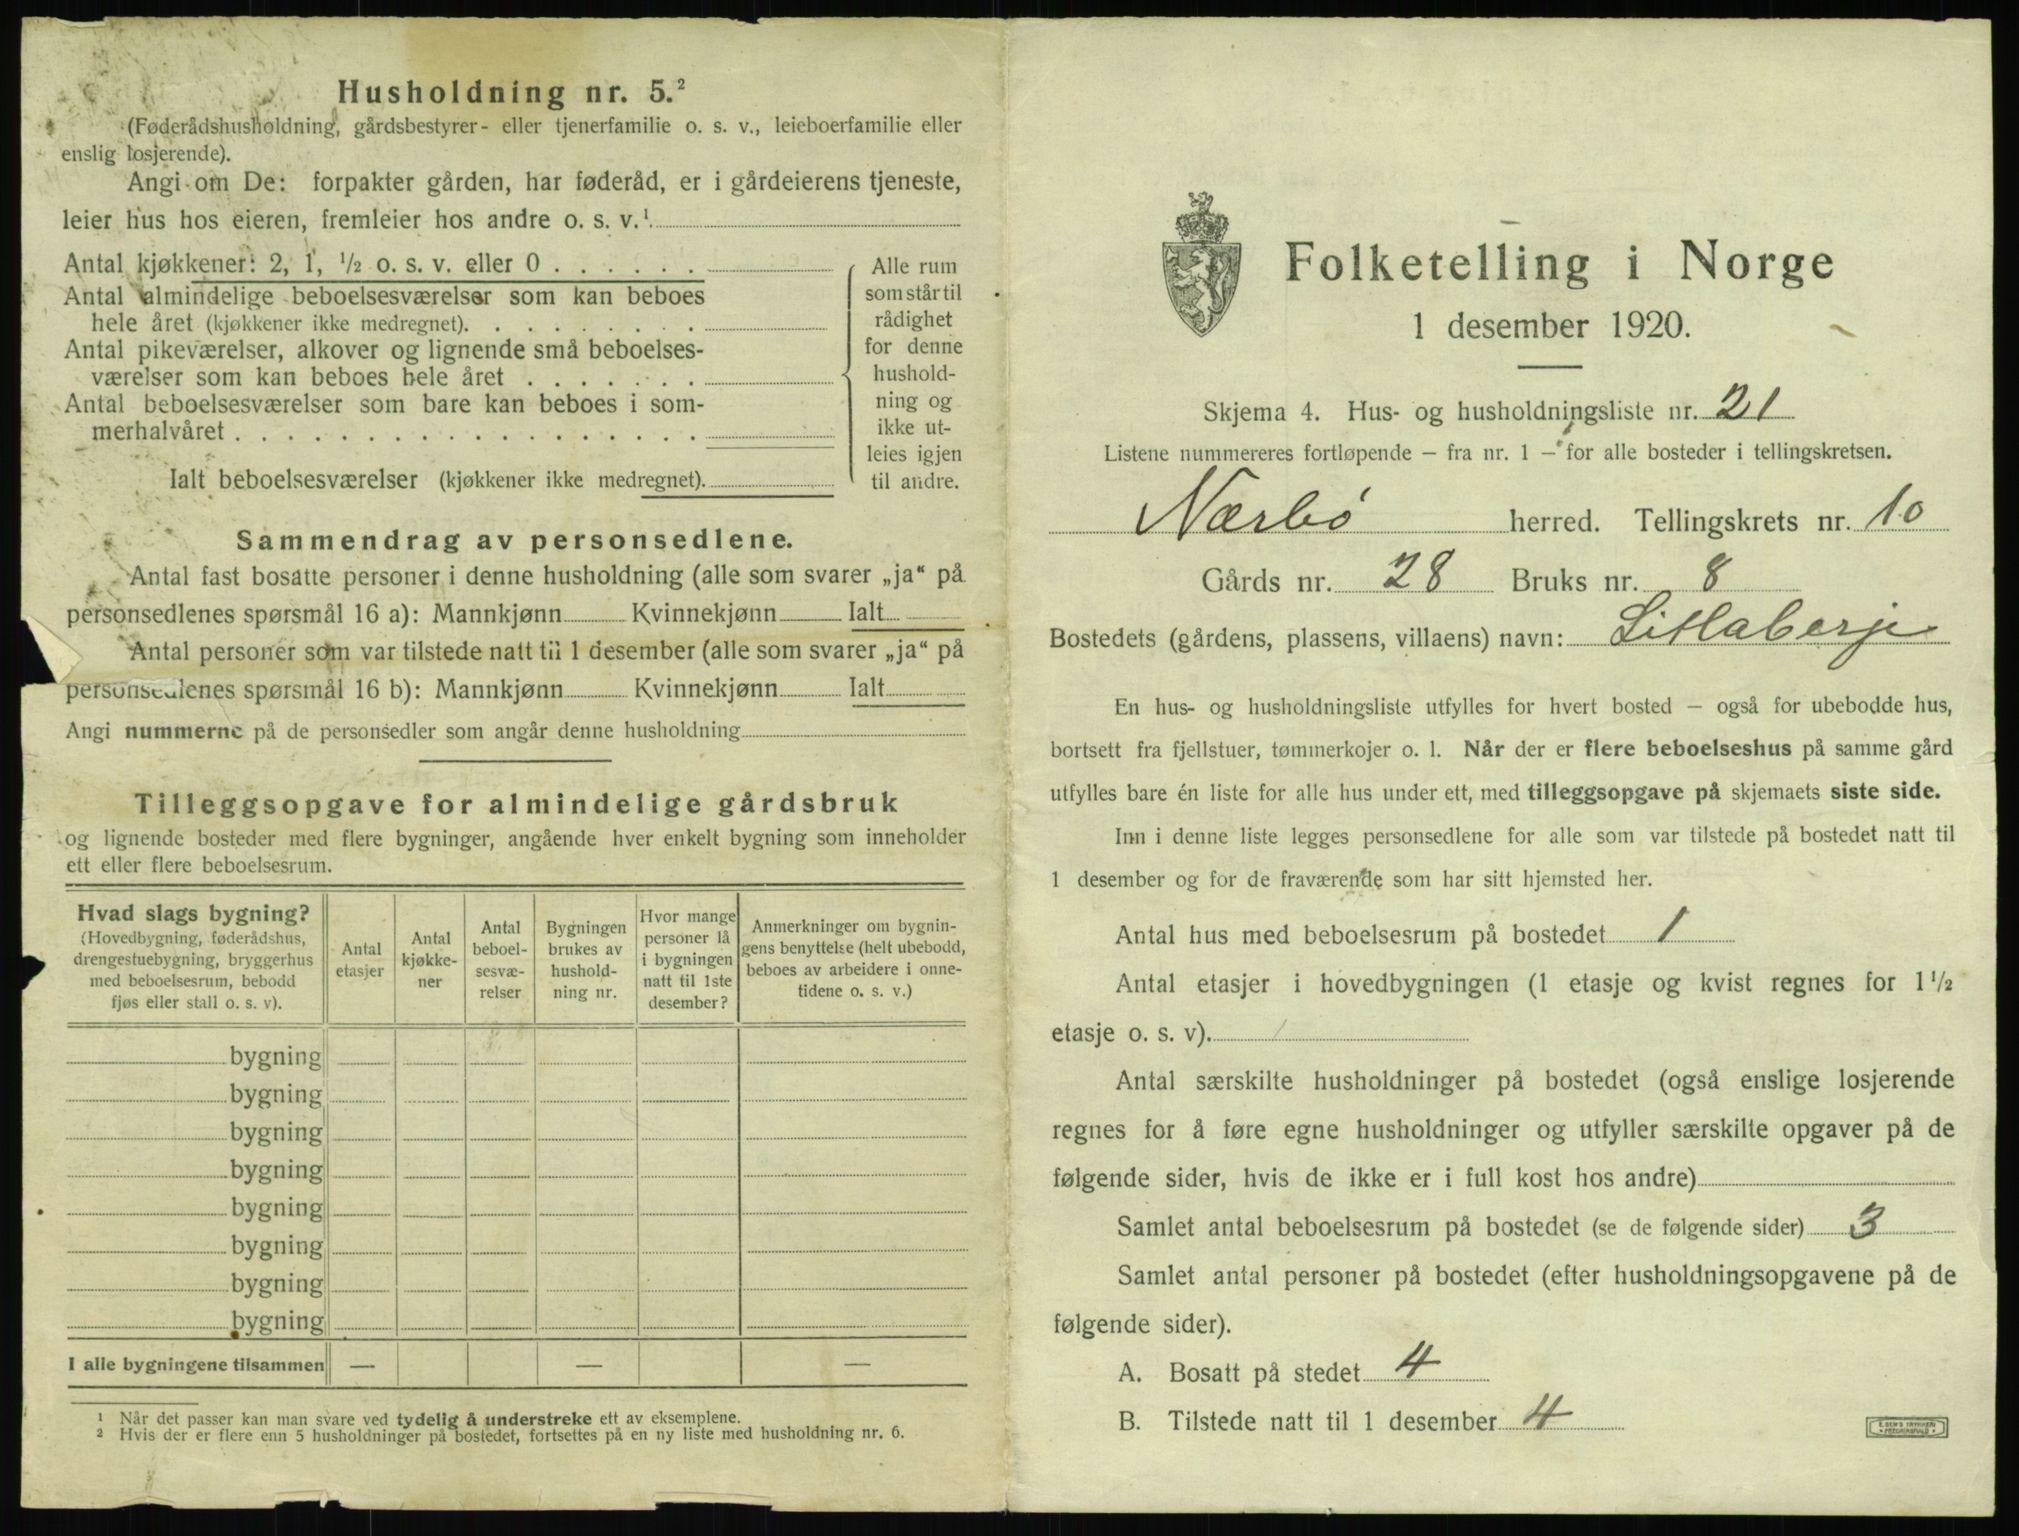 Husholdning nr. 5.²
(Føderådshusholdning, gårdsbestyrer- eller tjenerfamilie o. s. v., leieboerfamilie eller
enslig losjerende).
Angi om De: forpakter gården, har føderåd, er i gårdeierens tjeneste,
leier hus hos eieren, fremleier hos andre o. s. v.¹
Antal kjøkkener: 2, 1, ½ o. s. v. eller 0 . . . . . .
Antal almindelige beboelsesværelser som kan beboes
hele året (kjøkkener ikke medregnet). . . . . . . . .
Antal pikeværelser, alkover og lignende små beboelses-
værelser som kan beboes hele året . . . . . . .
Antal beboelsesværelser som bare kan beboes i som-
merhalvåret . . . . . . . . . . . . . . . . . .
Ialt beboelsesværelser (kjøkkener ikke medregnet).
Alle rum
som står til
rådighet
for denne
hushold-
ning og
ikke ut-
leies igjen
til andre.
Sammendrag av personsedlene.
Antal fast bosatte personer i denne husholdning (alle som svarer „ja“ på
personsedlenes spørsmål 16 a): Mannkjønn Kvinnekjønn Ialt
Antal personer som var tilstede natt til 1 desember (alle som svarer „ja“ på
personsedlenes spørsmål 16 b): Mannkjønn Kvinnekjønn Ialt
Angi nummerne på de personsedler som angår denne husholdning
Tilleggsopgave for almindelige gårdsbruk
og lignende bosteder med flere bygninger, angående hver enkelt bygning som inneholder
ett eller flere beboelsesrum.
Hvad slags bygning?
(Hovedbygning, føderådshus,
drengestuebygning, bryggerhus
med beboelsesrum, bebodd
fjøs eller stall o. s. v).
Antal
etasjer
Antal
kjøkke-
ner
Antal
beboel-
sesvæ-
relser
Bygningen
brukes av
hushold-
ning nr.
Hvor mange
personer lå
i bygningen
natt til 1ste
desember?
Anmerkninger om bygnin-
gens benyttelse (helt ubebodd,
beboes av arbeidere i onne-
tidene o. s. v.)
bygning
bygning
bygning
bygning
bygning
bygning
bygning
bygning
I alle bygningene tilsammen — — —
¹ Når det passer kan man svare ved tydelig å understreke ett av eksemplene.
² Hvis der er flere enn 5 husholdninger på bostedet, fortsettes på en ny liste med husholdning nr. 6.
Folketelling i Norge
1 desember 1920.
Skjema 4. Hus- og husholdningsliste nr. 21
Listene nummereres fortløpende — fra nr. 1 — for alle bosteder i tellingskretsen.
Nærbö herred. Tellingskrets nr. 10
Gårds nr. 28 Bruks nr. 8
Bostedets (gårdens, plassens, villaens) navn: Litlaberje
En hus- og husholdningsliste utfylles for hvert bosted — også for ubebodde hus,
bortsett fra fjellstuer, tømmerkojer o. l. Når der er flere beboelseshus på samme gård
utfylles bare én liste for alle hus under ett, med tilleggsopgave på skjemaets siste side.
Inn i denne liste legges personsedlene for alle som var tilstede på bostedet natt til
1 desember og for de fraværende som har sitt hjemsted her.
Antal hus med beboelsesrum på bostedet 1
Antal etasjer i hovedbygningen (1 etasje og kvist regnes for 1½
etasje o. s. v). 1
Antal særskilte husholdninger på bostedet (også enslige losjerende
regnes for å føre egne husholdninger og utfyller særskilte opgaver på de
følgende sider, hvis de ikke er i full kost hos andre)
Samlet antal beboelsesrum på bostedet (se de følgende sider) 3
Samlet antal personer på bostedet (efter husholdningsopgavene på de
følgende sider).
A. Bosatt på stedet 4
B. Tilstede natt til 1 desember 4